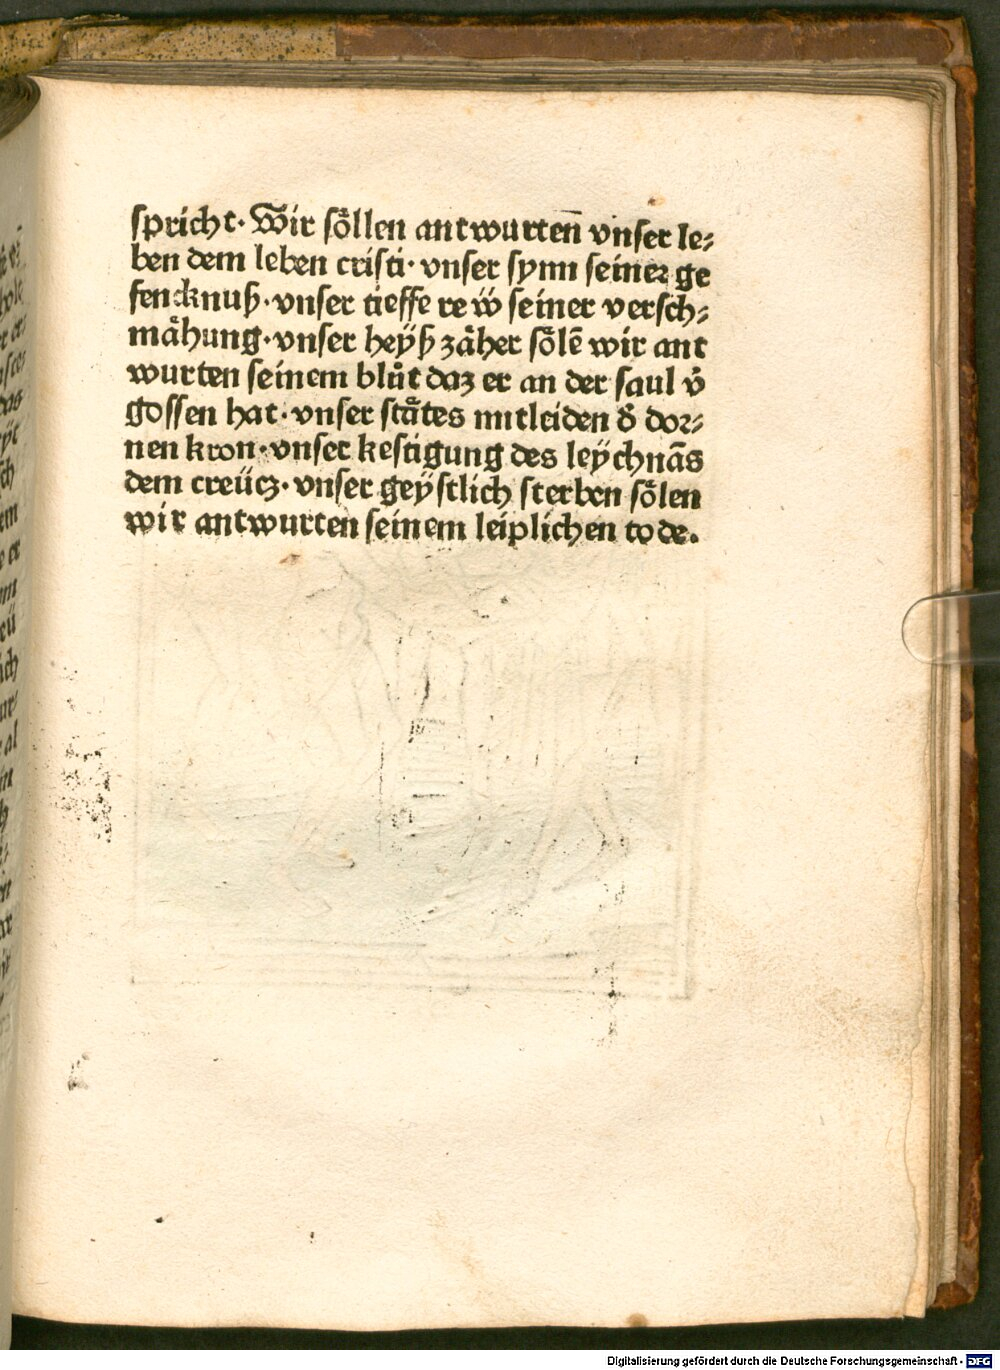 spricht· Wir soͤllen antwurten̄ vnser le⸗
ben dem leben cristi· vnser synn seiner ge
fencknuß·vnser tieffe reẅ seiner versch⸗
maͤhung·vnser heÿß zaͤher soͤlē wir ant
wurten seinem bluͦt daz er an der saul v̊
gossen hat·vnser staͤtes mitleiden d̊ dor⸗
nen kron·vnser kestigung des leÿchnās
dem creücz·vnser geÿstlich sterben soͤlen
wir antwurten seinem leiplichen tode.
Digitalisierung gefördert durch die Deutsche Forschungsgemeinschaft - DFG